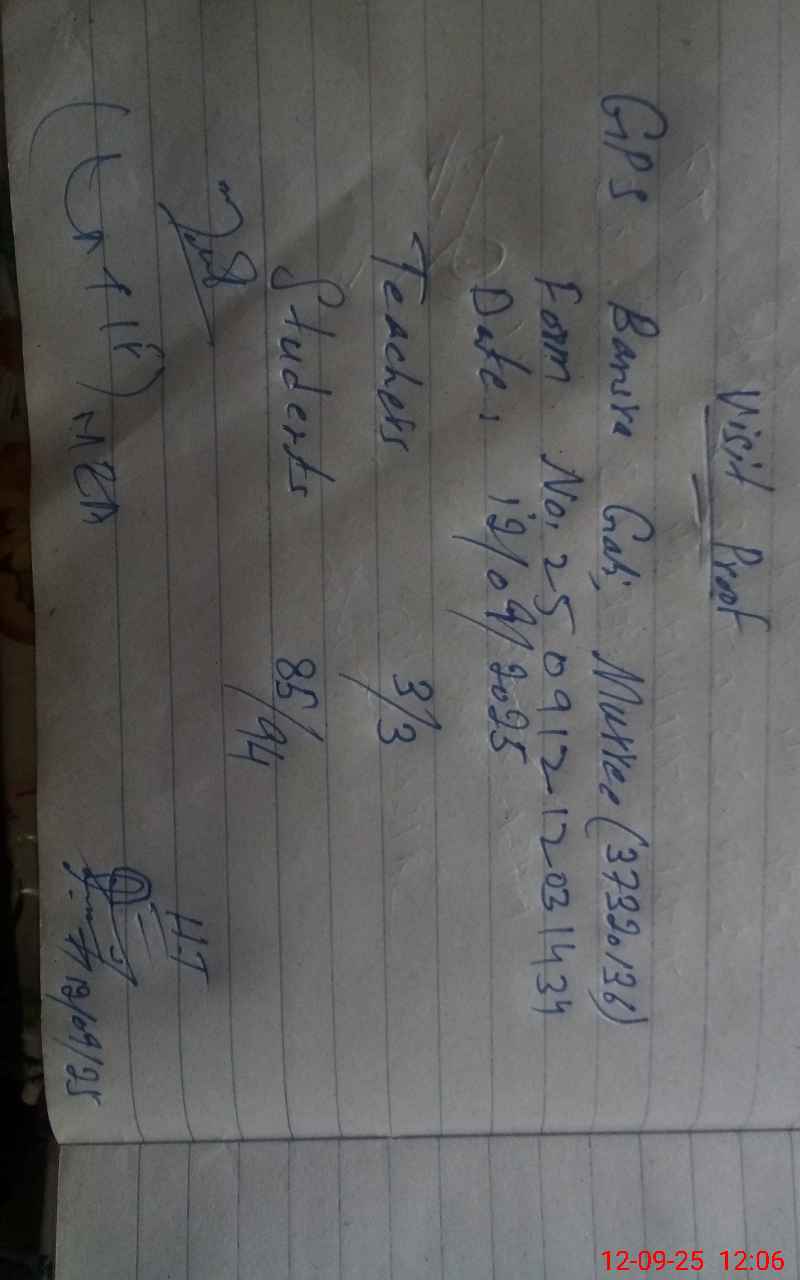 Visit Proof
GPS Bansra Gali, Murree (37320136)
Form No. 25091212031434
Date: 12/09/2025
Teachers 3/3
Students 85/94
H.T
12/09/25
12-09-25 12:06